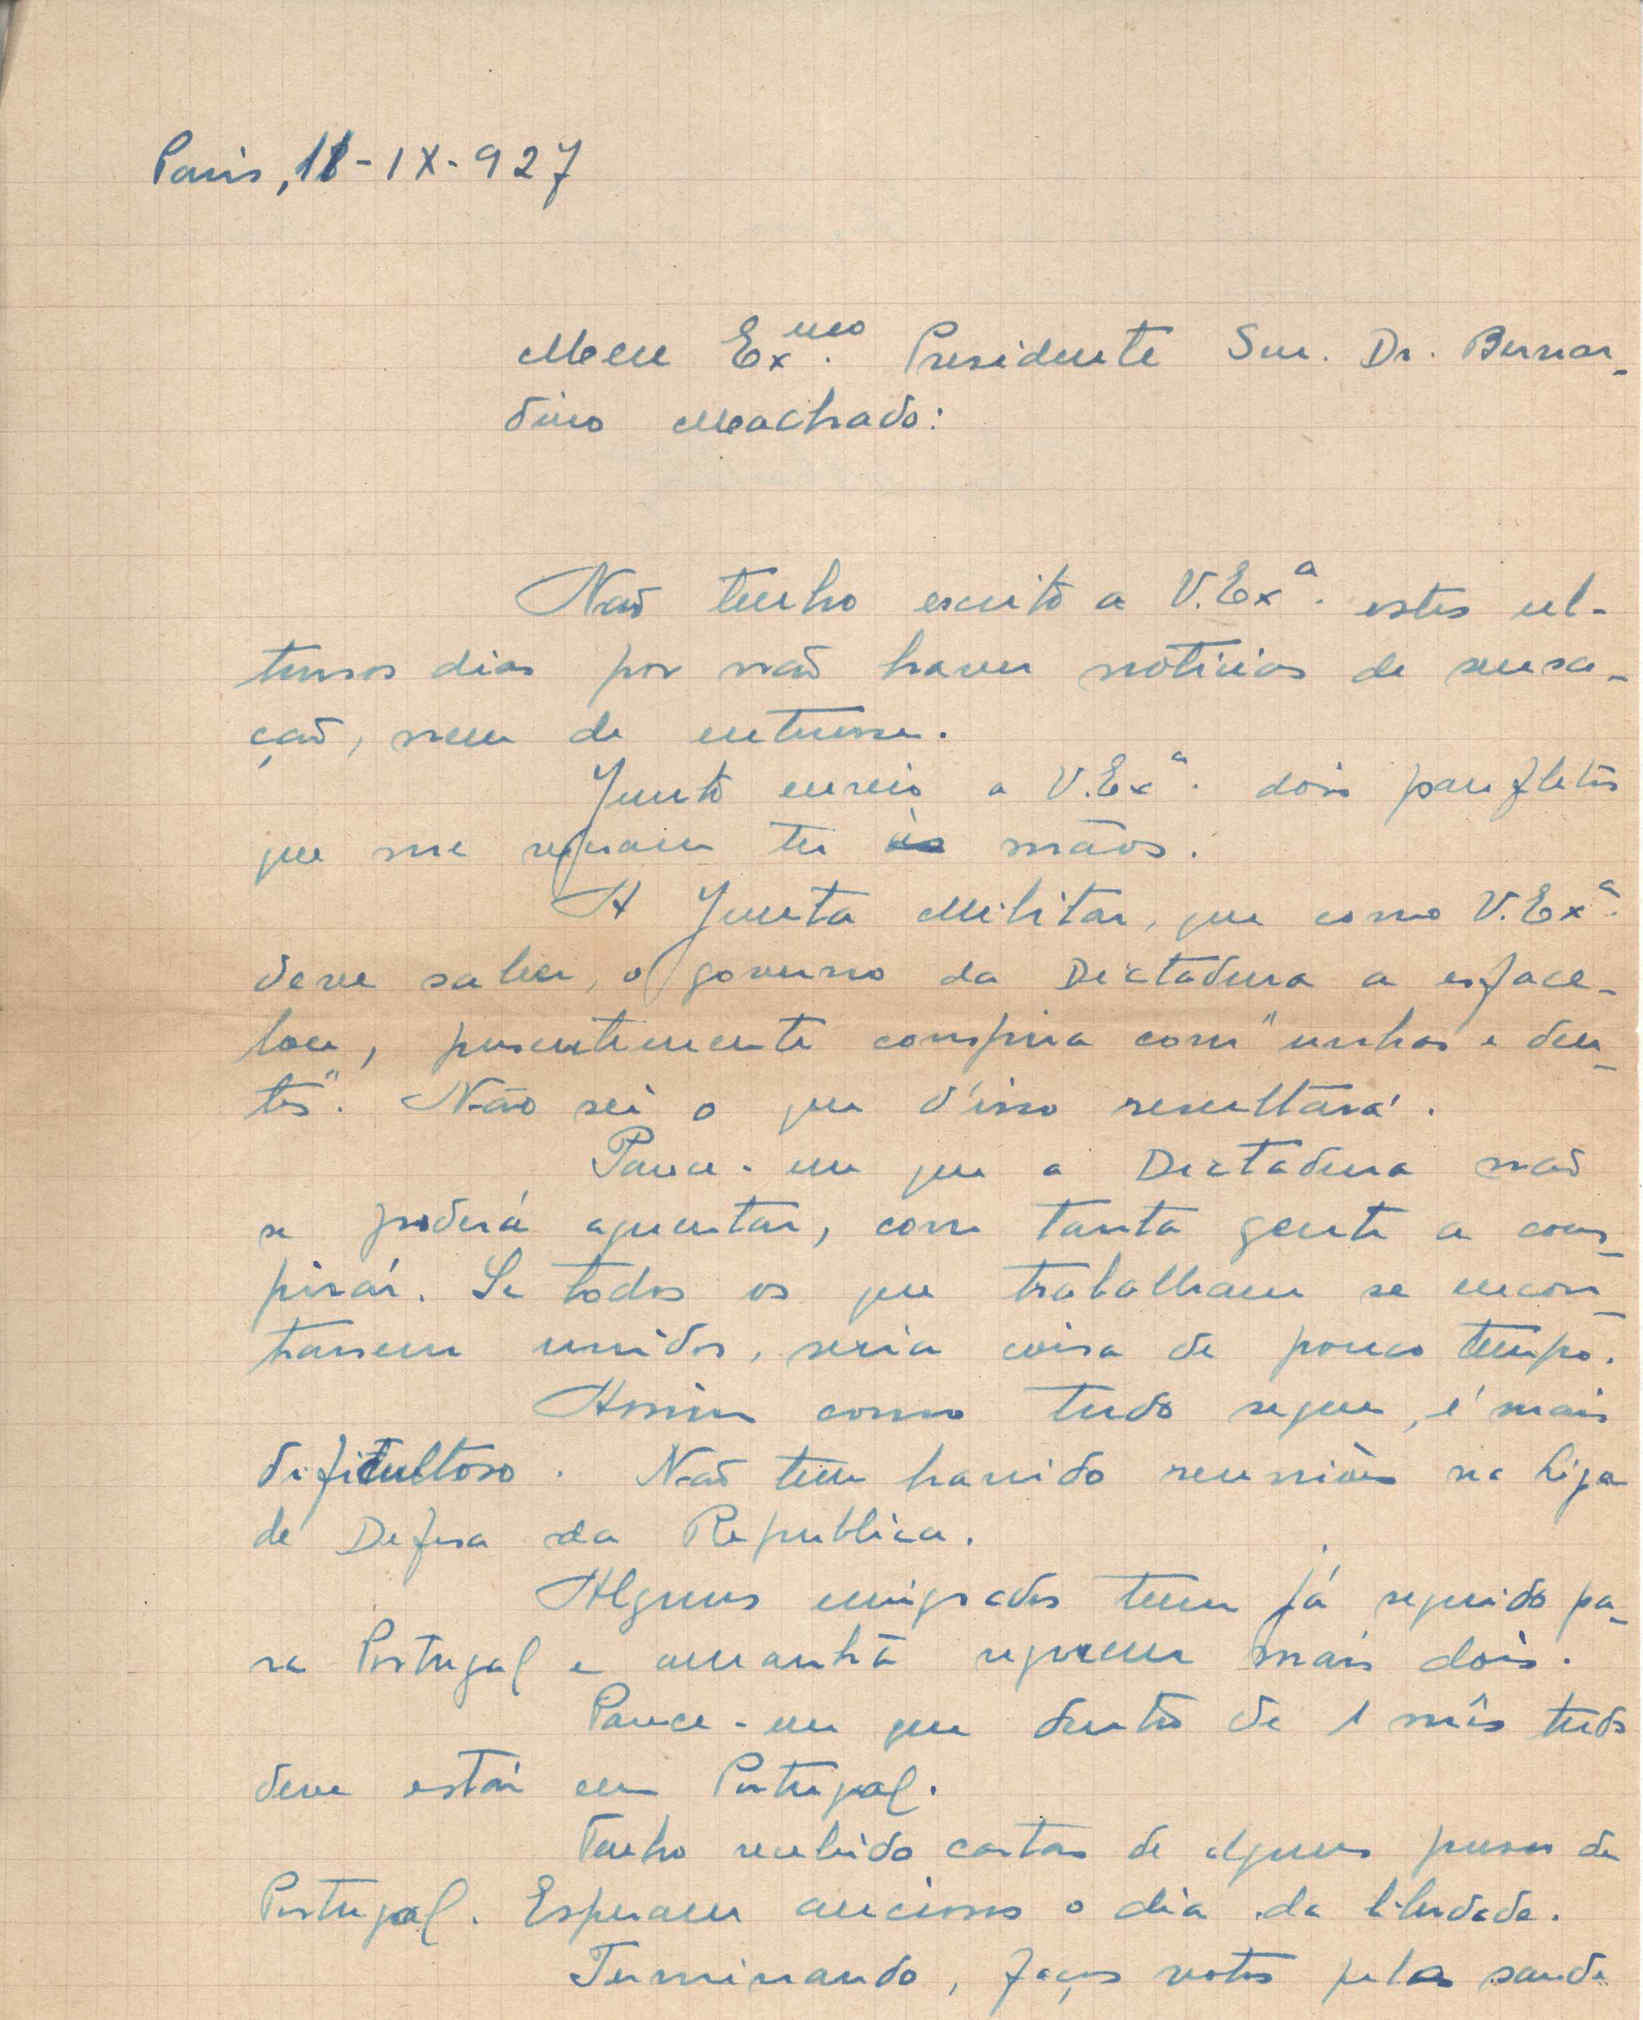 Paris, 11-IX-927
Meu Ex.mo Presidente Snr. Dr. Bernar-
dino Machado:
Não tenho escrito a V.Ex.a estes ul-
timos dias por não haver noticias de sensa-
ção, nem de interesse.
Junto envio a V.Ex.a dois panfletos
que me vieram ter ás mãos.
A Junta Militar, que como V.Ex.a
deve saber, o governo da Dictadura a esface-
lou, presentemente conspira com "unhas e den-
tes". Não sei o que d'isso resultará.
Parece-me que a Dictadura não
se poderá aguentar, com tanta gente a cons-
pirár. Se todos os que trabalham se encon-
trassem unidos, seria coisa de pouco tempo.
Assim como tudo segue, é mais
dificultoso. Não tem havido reuniões na Liga
de Defesa da Republica.
Alguns emigrados teem já seguido pa-
ra Portugal e amanhã seguem mais dois.
Parece-me que dentro de 1 mês tudo
deve estár em Portugal.
Tenho recebido cartas de alguns presos de
Portugal. Esperam anciosos o dia da liberdade.
Terminando, faço votos pela saude